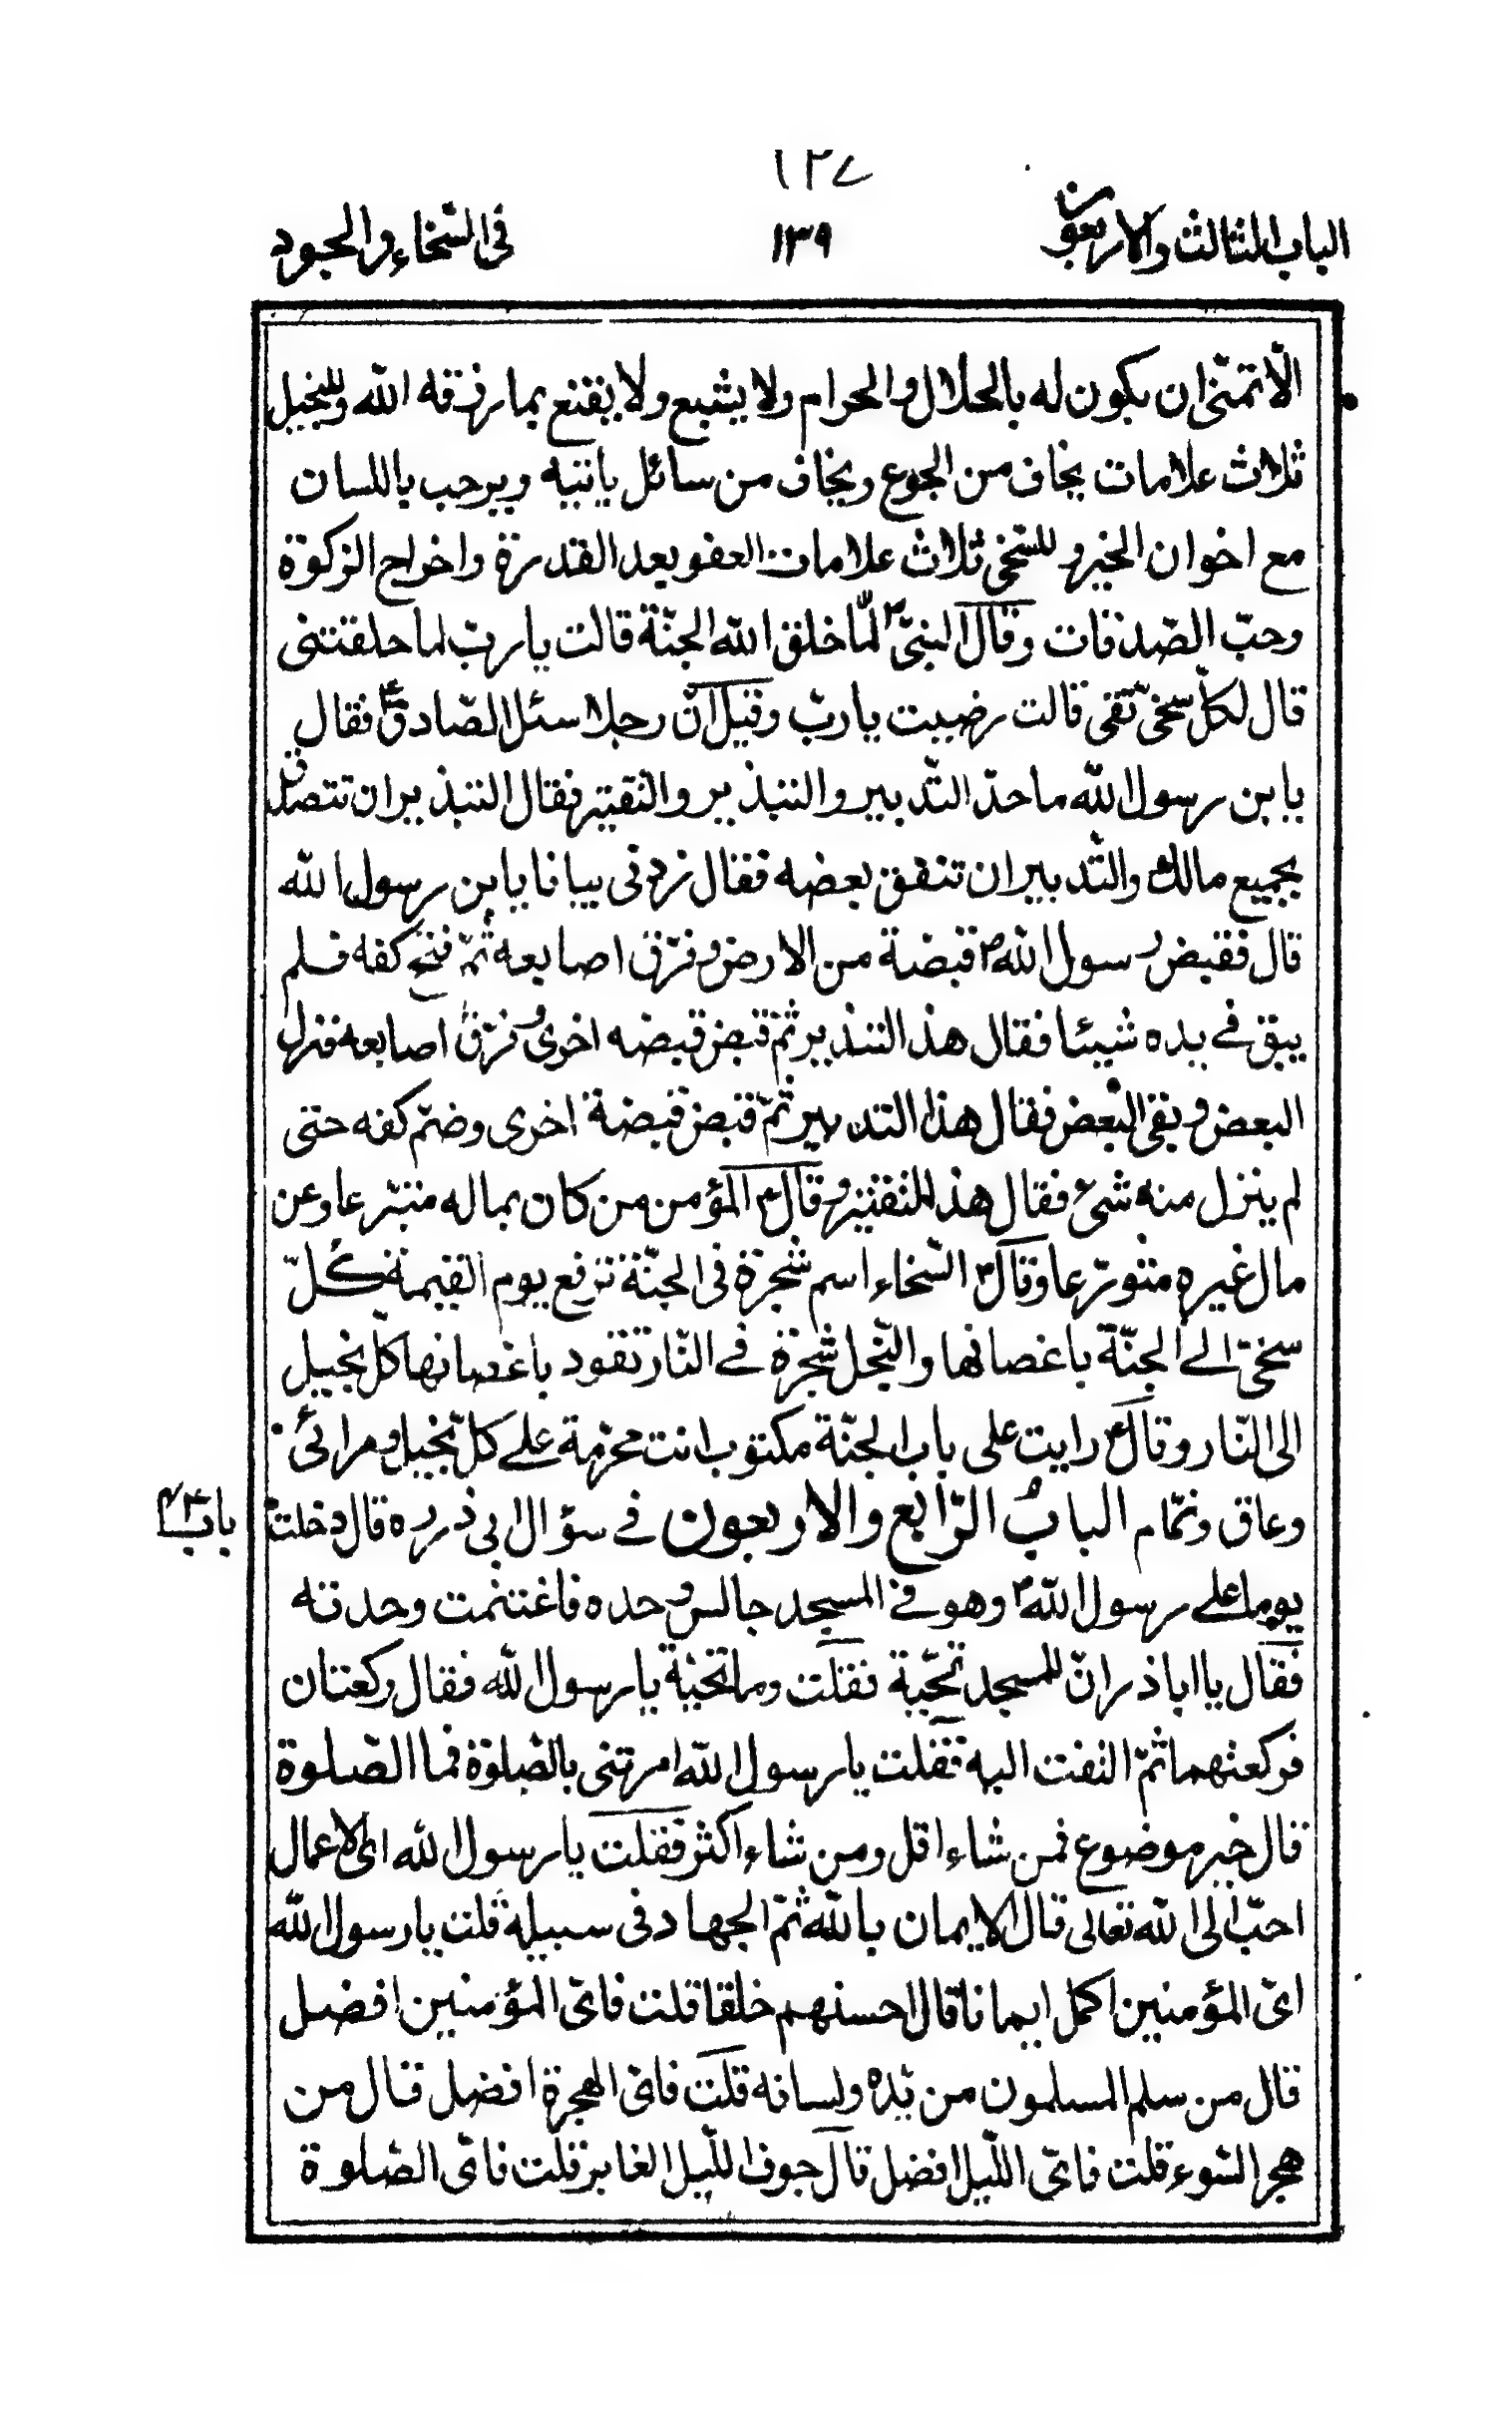 ١٣٧
الباب الثالث والاربعون
١٣٩
فى السّخاء والجود
الّا تمنّى ان يكون له بالحلال والحرام ولا يشبع ولا يقنع بما رزقه الله وللبخيل
ثلاث علامات يخاف من الجوع ويخاف من سائل ياتيه ويرحب باللسان
مع اخوان الخير وللسّخى ثلاث علامات العفو بعد القدرة واخراج الزكوة
وحبّ الصّدقات وقال النبىّ ص لمّا خلق الله الجنّة قالت يا ربّ لما خلقتنى
قال لكلّ سخىّ تقى قالت رضيت يا ربّ وقيل انّ رجلا سئل الصّادق ع فقال
يا بن رسول الله ما حدّ التّدبير والتبذير والتقتير فقال التبذير ان تتصدّق
بجميع مالك والتّدبير ان تنفق بعضه فقال زدنى بيانا يا بن رسول الله
قال فقبض رسول الله ص قبضة من الارض وفرّق اصابعه ثمّ فتح كفه فلم
يبق فى يده شيئا فقال هذا التبذير ثمّ قبض قبضه اخرى وفرّق اصابعه فنزل
البعض وبقى البعض فقال هذا التدبير ثمّ قبض قبضة اخرى وضمّ كفه حتى
لم ينزل منه شىء فقال هذا التقتير وقال ع المؤمن من كان بماله متبرّعا وعن
مال غيره متورّعا وقال ص السّخاء اسم شجرة فى الجنّة ترفع يوم القيمة كلّ
سخىّ الى الجنّة باغصانها والبخل شجرة فى النّار تقود باغصانها كلّ بخيل
الى النّار وقال ص رايت على باب الجنّة مكتوب انت محرّمة على كلّ بخيل ومرائى
وعاق ونمّام الباب الرّابع والاربعون فى سؤال ابى ذر ره قال دخلت
باب ٤٤
يوما على رسول الله ص وهو فى المسجد جالس وحده فاغتنمت وحدته
فقال يا اباذر انّ للمسجد تحيّة فقلت وما تحيّة يا رسول الله فقال ركعتان
فركعتهما ثمّ التفت اليه فقلت يا رسول الله امرتنى بالصّلوة فما الصّلوة
قال خير موضوع فمن شاء اقل ومن شاء اكثر فقلت يا رسول الله اىّ الاعمال
احبّ الى الله تعالى قال الايمان بالله ثمّ الجهاد فى سبيله قلت يا رسول الله
اىّ المؤمنين اكمل ايمانا قال احسنهم خلقا قلت فاىّ المؤمنين افضل
قال من سلم المسلمون من يده ولسانه قلت فاىّ الهجرة افضل قال من
هجر السّوء قلت فاىّ اللّيل افضل قال جوف اللّيل الغابر قلت فاىّ الصّلوة